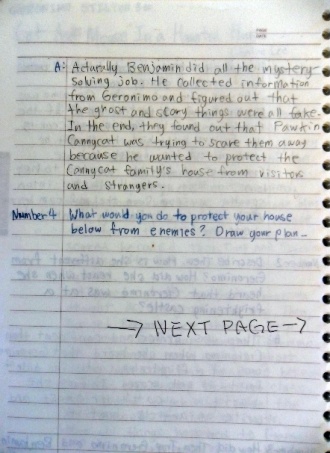 A: Acturally Benjamin did all the mystery
solving job. He collected information
from Geronimo and figured out that
the ghost and scary things were all fake.
In the end, they found out that Pawkin
Cannycat was trying to scare them away
because he wanted to protect the
Cannycat family's house from visitors
and strangers.
Number 4 What would you do to protect your house
below from enemies? Draw your plan.
→ NEXT PAGE →